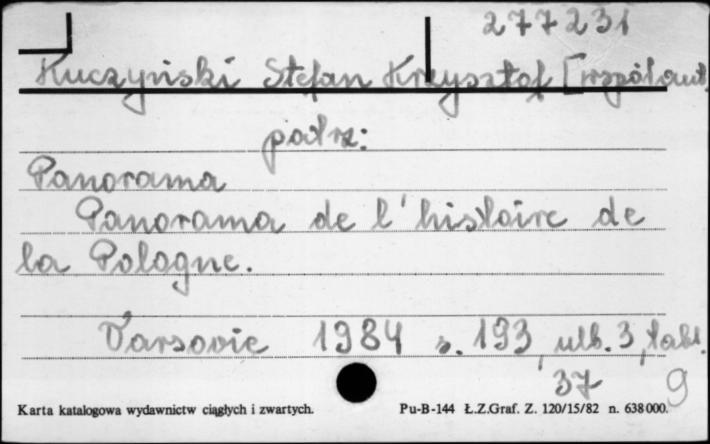 277231
Kuczyński Stefan Krzysztof [współaut.
patrz:
Panorama
Panorama de l'histoire de
la Pologne.
Varsovie 1984 s. 193, ulb. 3, tabl.
37 9
Karta katalogowa wydawnictw ciągłych i zwartych. Pu-B-144 Ł.Z.Graf. Z. 120/15/82 n. 638000.